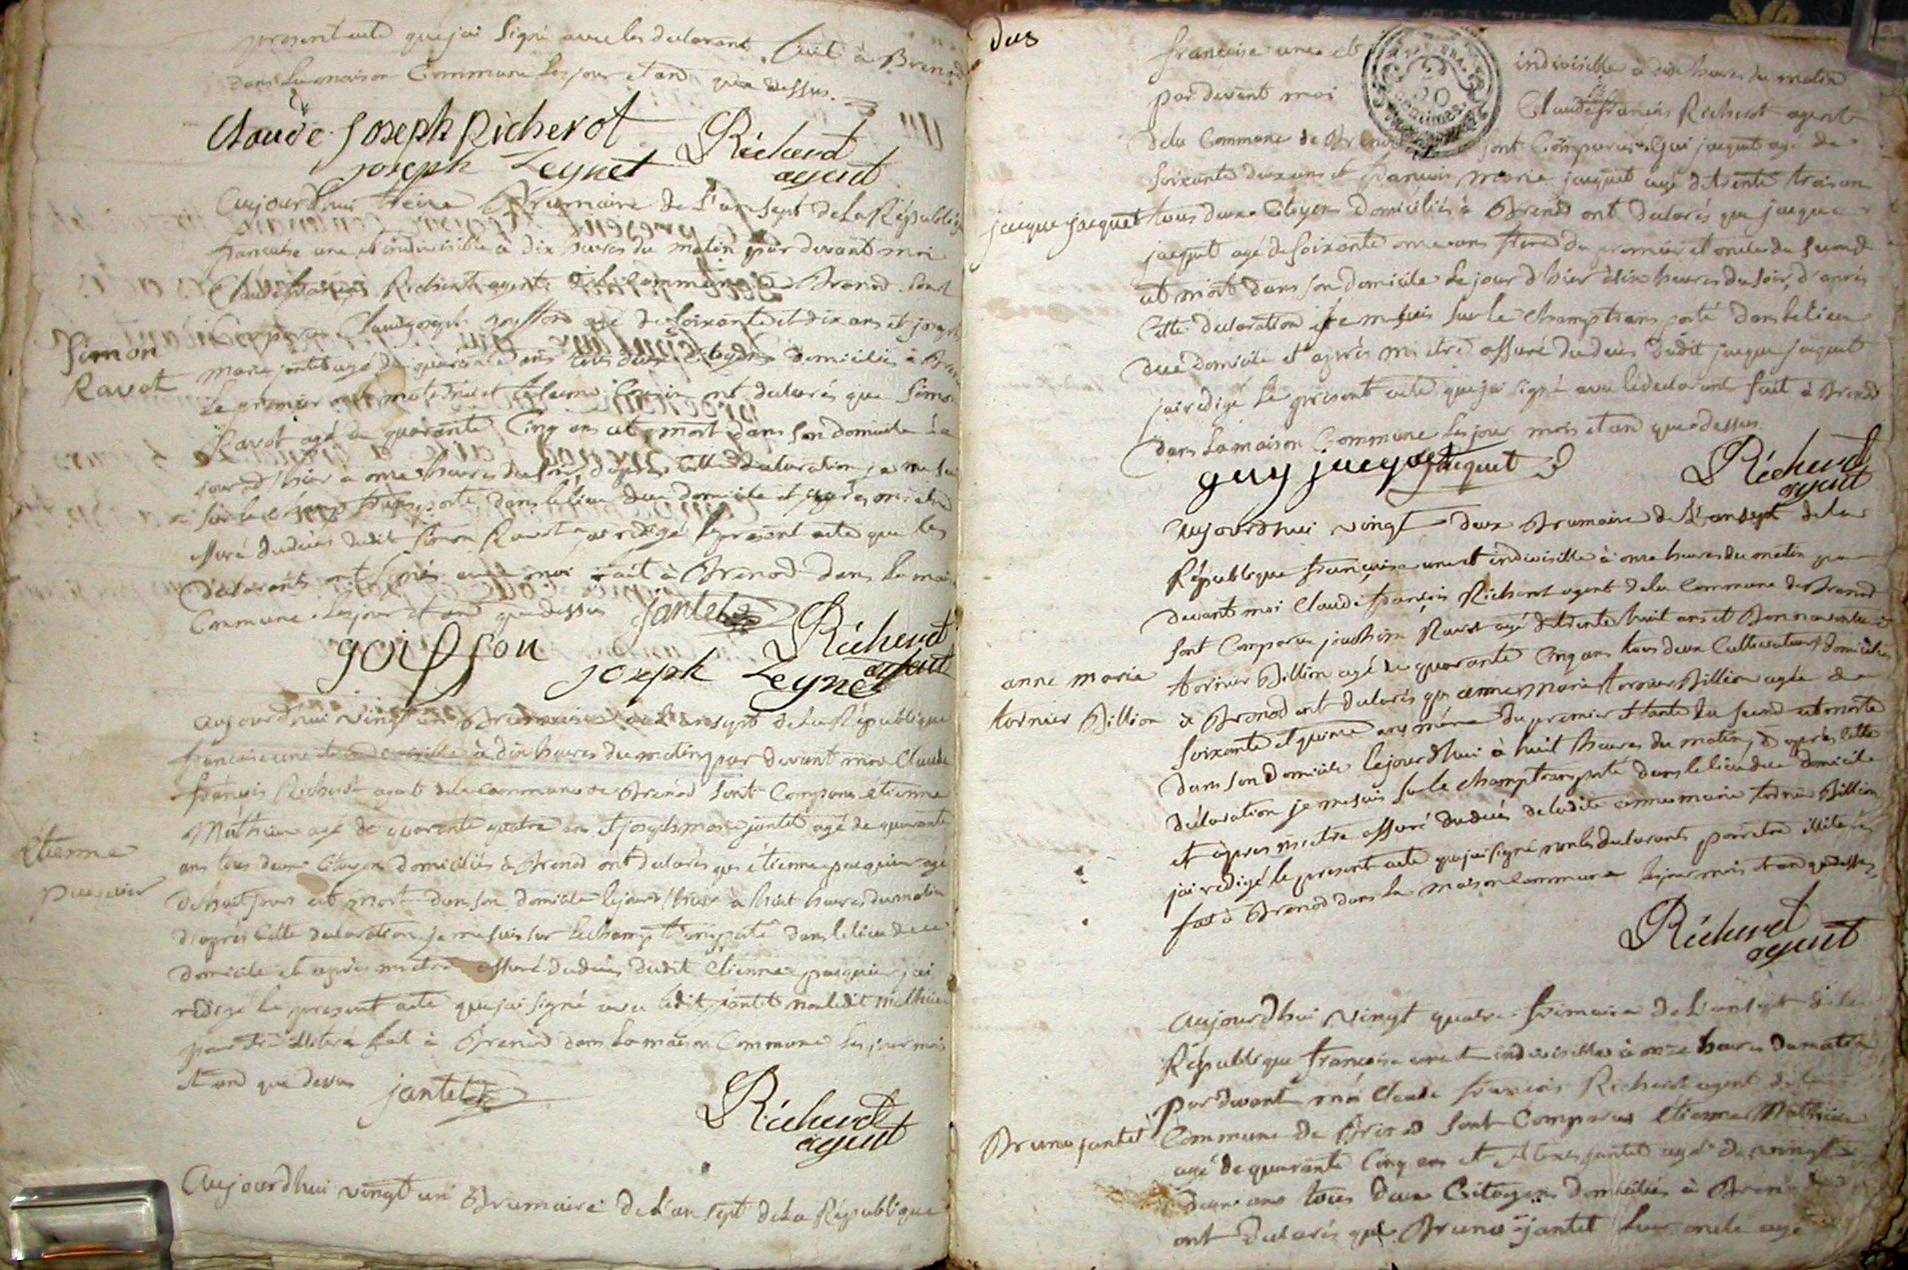 present acte que j'ai signé avec les declarant. fait à Brenod
dans la maison Commune les jour et an que dessus.
Claude Joseph Richerot
joseph Leynet Richerot
agent
Aujourd'hui treize Brumaire de l'an sept de la République
francaise une et indivisible à dix heures du matin par devant moi
Claude francois Richerot agent de la Commune de Brenod sont
Comparu Claude joseph goiffon agé de soixante et dix ans et joseph
Simon
Ravot
marie jantet agé de quarante ans tous deux Citoyens domiciliés à Brenod
le premier et le second ont declarés que Simon
Ravot agé de quarante Cinq ans est mort dans son domicile le
jour d'hier a onze heures du soir, d'après Cette declaration je me suis
sur le champ transporté dans le lieu dudit domicile et après m'etre
assuré du décés dudit Simon Ravot j'ai redigé le present acte que les
declarants ont signés avec moi fait à Brenod dans la maison
Commune les jour et an que dessus jantet
goiffon joseph Leynet Richerot
agent
Aujourd'hui vingt un Brumaire de l'an sept de la République
francaise une et indivisible à dix heures du matin par devant moi Claude
francois Richerot agent de la Commune de Brenod sont Comparu étienne
Mathieu agé de quarante quatre ans et joseph marie jantet agé de quarante
étienne
pasquier
ans tous deux Citoyens domiciliés à Brenod ont declarés que étienne pasquier agé
de huit jours est mort dans son domicile le jour d'hier à huit heures du matin
d'après Cette declaration je me suis sur le champ transporté dans le lieu de ce
domicile et après m'etre assuré du décés dudit étienne pasquier j'ai
redigé le present acte que j'ai signé avec ledit jantet non ledit Mathieu
pour etre illiteré fait à Brenod dans la maison Commune les jour mois
et an que dessus jantet
Richerot
agent
Aujourd'hui vingt un Brumaire de l'an sept de la République
dus
francaise une et indivisible a dix heures du matin
par devant moi Claude francois Richerot agent
de la Commune de Brenod sont Comparus Gui jacquet agé de
soixante deux ans et francois marie jacquet agé de trente trois ans
jacque jacquet
tous deux Citoyens domiciliés à Brenod ont declarés que jacque
jacquet agé de soixante onze ans frere du premier et oncle du second
est mort dans son domicile le jour d'hier à six heures du soir, d'après
Cette declaration je me suis sur le champ transporté dans le lieu
dudit domicile et après m'etre assuré du décés dudit jacque jacquet
j'ai redigé le present acte que j'ai signé avec les declarant fait à Brenod
dans la maison Commune les jour mois et an que dessus
guy jacquet jacquet Richerot
agent
Aujourd'hui vingt deux Brumaire de l'an sept de la
République francaise une et indivisible à onze heures du matin par
devant moi Claude francois Richerot agent de la Commune de Brenod
sont Comparu joachim Ravot agé de trente huit ans et Bonnaventure
anne marie
tornier Billion
tornier Billion agé de quarante Cinq ans tous deux Cultivateurs domiciliés
à Brenod ont declarés que anne marie tornier Billion agée de
soixante et quinze ans mère du premier et tante du second est morte
dans son domicile le jourd'hui à huit heures du matin, d'après Cette
déclaration je me suis sur le champ transporté dans le lieu dudit domicile
et après m'etre assuré du décés de ladite anne marie tornier Billion
j'ai redigé le present acte que j'ai signé non les declarants pour etre illiterés
fait à Brenod dans la maison Commune les jour mois et an que dessus
Richerot
agent
Aujourd'hui vingt quatre frimaire de l'an sept de la
République francaise une et indivisible à onze heures du matin
par devant moi Claude francois Richerot agent de la
Bruno jantet
Commune de Brenod sont Comparus étienne Mathieu
agé de quarante Cinq ans et jantet agé de vingt
deux ans tous deux Citoyens domiciliés à Brenod
ont declarés que Bruno jantet leur oncle agé